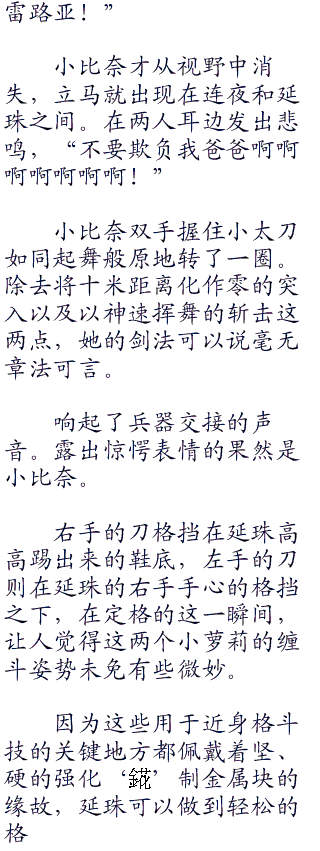 雷路亚！”
小比奈才从视野中消
失，立马就出现在连夜和延
珠之间。在两人耳边发出悲
鸣，“不要欺负我爸爸啊啊
啊啊啊啊啊！”
小比奈双手握住小太刀
如同起舞般原地转了一圈。
除去将十米距离化作零的突
入以及以神速挥舞的斩击这
两点，她的剑法可以说毫无
章法可言。
响起了兵器交接的声
音。露出惊愕表情的果然是
小比奈。
右手的刀格挡在延珠高
高踢出来的鞋底，左手的刀
则在延珠的右手手心的格挡
之下，在定格的这一瞬间，
让人觉得这两个小萝莉的缠
斗姿势未免有些微妙。
因为这些用于近身格斗
技的关键地方都佩戴着坚、
硬的强化‘錵’制金属块的
缘故，延珠可以做到轻松的
格